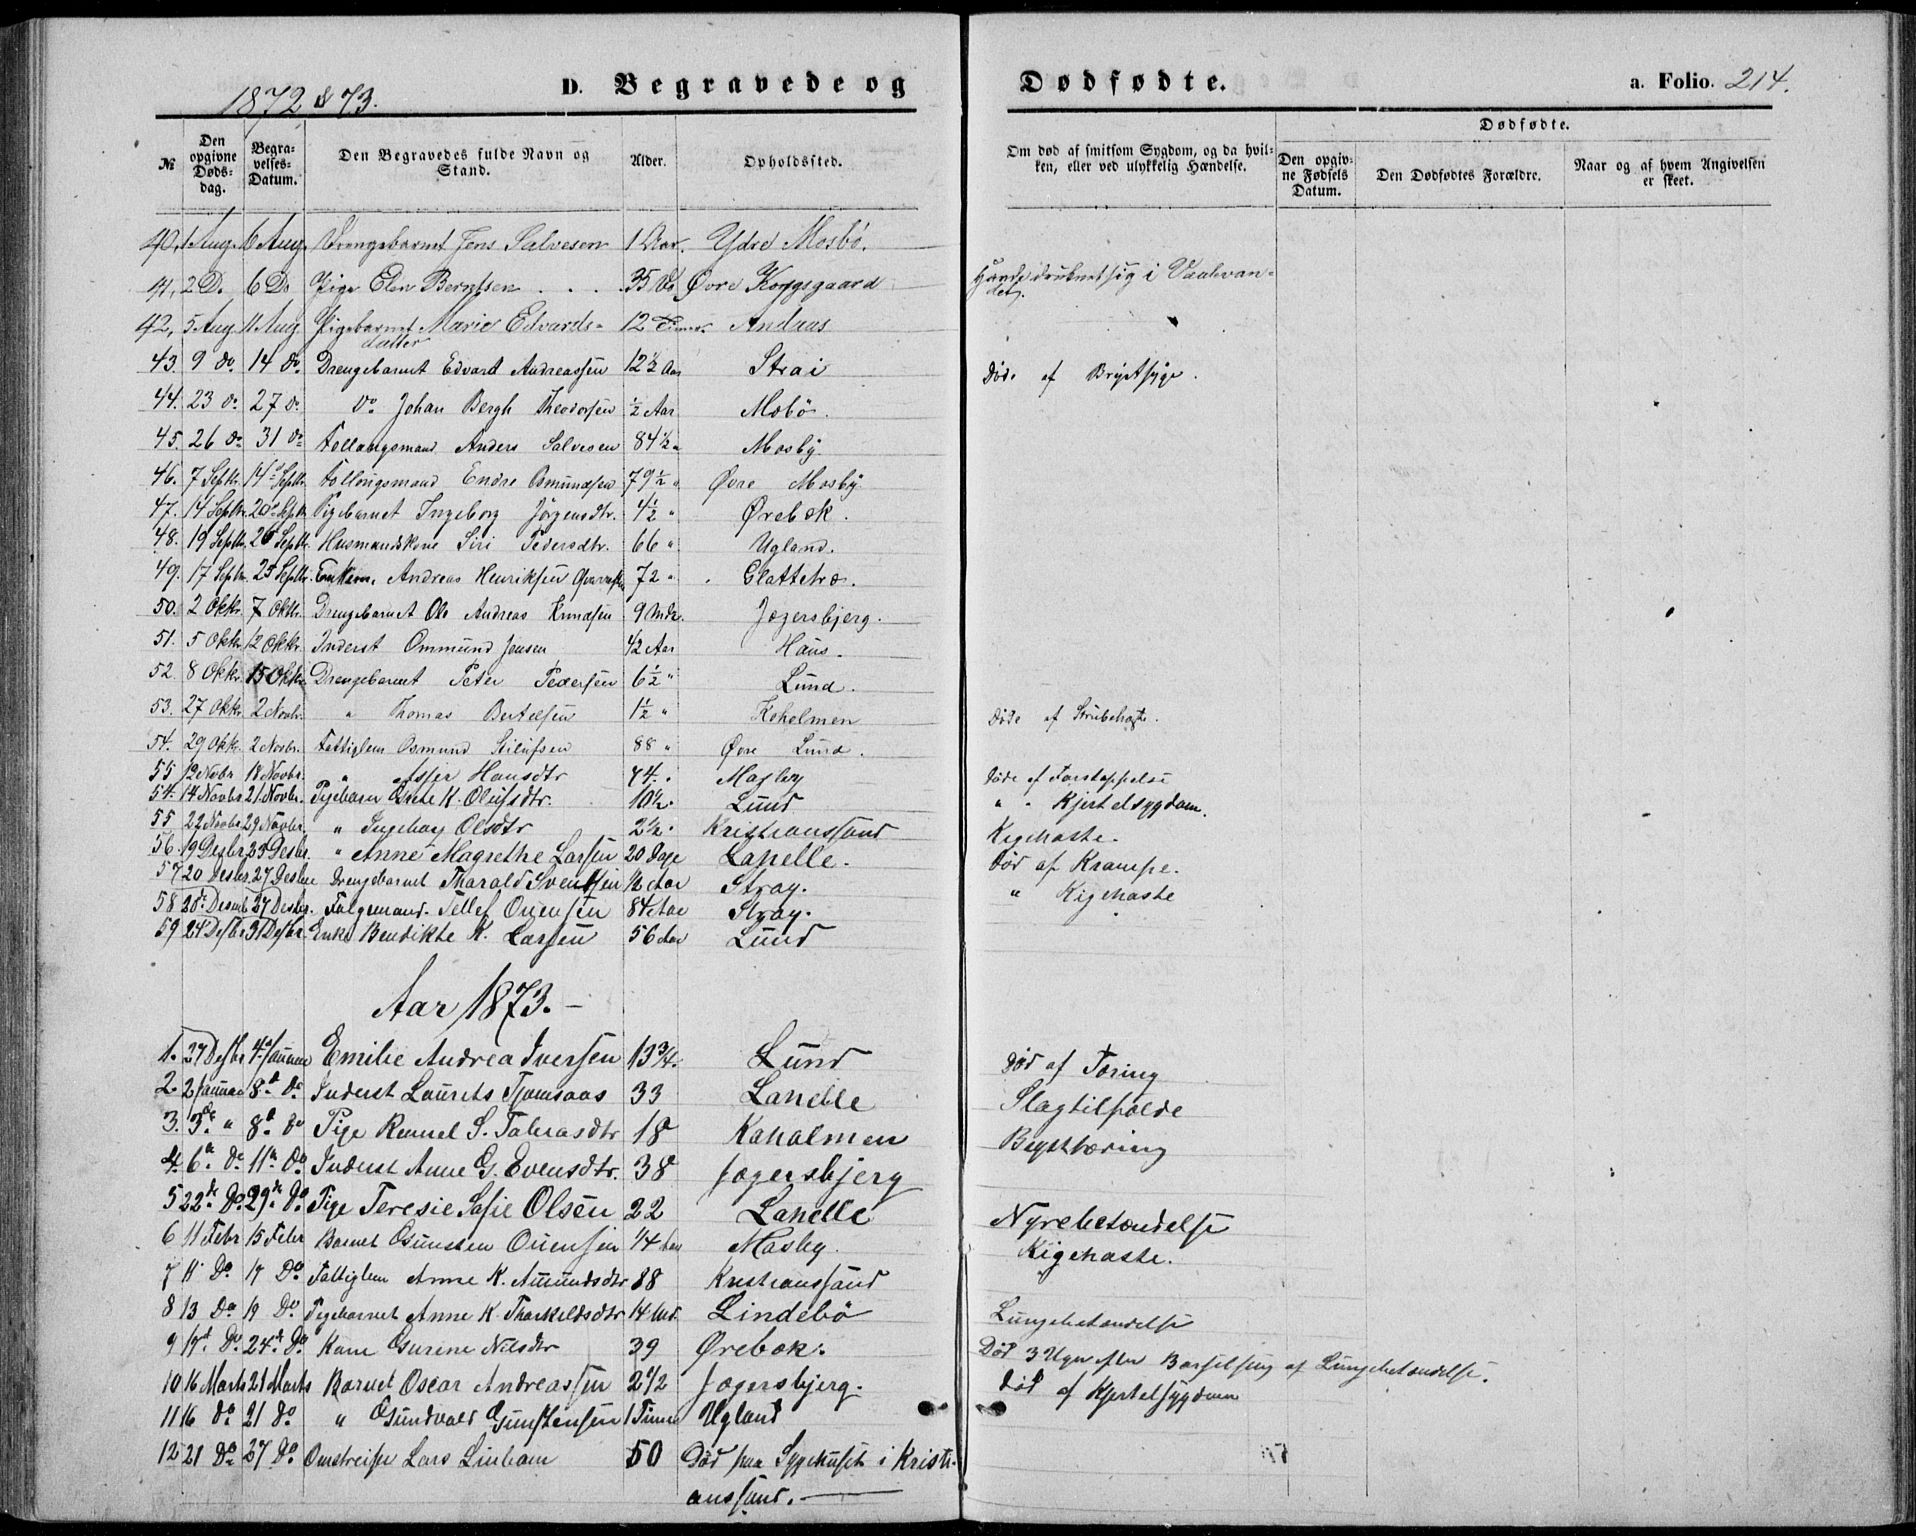 1872 & 73.
D. Begravede og Dødfødte.
a. Folio. 214.
№
Den opgivne Dødsdag.
Begravelses-Datum.
Den Begravedes fulde Navn og Stand.
Alder.
Opholdssted.
Om død af smitsom Sygdom, og da hvilken, eller ved ulykkelig Hændelse.
Dødfødte.
Den opgivne Fødsels Datum.
Den Dødfødtes Forældre.
Naar og af hvem Angivelsen er skeet.
40, 1 Aug. 6 Aug. Drengebarnet Jens Salvesen 1 Aar. Ydre Mosbö.
41, 2 D. 6 Do Pige Elen Berntsen . . . 35 Do Øvre Kongsgaard Havde druknet sig i
42, 5 Aug 11 Aug Pigebarnet Marie Edvards- 12 Timer Andaas
datter
43. 9 do. 14 do. Drengebarnet Edvard Andreassen 12½ Aar Strai Døde af Brystsyge.
44. 23 do 27 do Do Johan Bergh Theodorsen ½ Aar Mobö.
45. 26 do 31 do Follaugsmand Anders Salvesen 84½ " Mosby.
46. 7 Septbr. 14 Septbr. Follougsmand Endre Osmundsen 79½ " Øvre Mosby
47. 14 Septbr. 20 Septbr. Pigebarnet Ingeborg Jörgensdtr. 4½ " Ørebæk.
48. 19 Septbr. 26 Septbr. Husmandskone Siri Pedersdtr. 66 " Ugland.
49. 17 Septbr. 25 Septbr. Enkem. Andreas Henriksen 72 " Glattetræ.
50. 2 Oktbr. 7 Oktbr. Drengebarnet Ole Andreas Knudsen 9 Mdr. Jægersbjerg.
51. 5 Oktbr. 12 Oktbr. Inderst Ommund Jensen 42 Aar Haus.
52. 8 Oktbr. 15 Oktbr. Drengebarnet Peter Pedersen 6½ " Lund.
53. 27 Oktbr. 2 Novbr. " Thomas Bertelsen 1½ " Keholmen Døde af Strubehoste.
54. 29 Oktbr. 2 Novbr. Fattiglem Osmund 88 " Øvre Lund.
55 12 Novbr 18 Novbr. " Asser Hansdtr 74. Mosby Døde af Forstoppelse
54. 14 Novbr 21. Novbr. Pigebarn Grete K. Olufsdtr. 10½. Lund " " Kjertelsygdom.
55 22 Novbr 29 Novbr. " Ingeborg Olsdtr 2½. Kristianssand Kighoste.
56. 19 Desbr 23 Desbr. " Anne Magrethe Larsen 20 Dage Lahelle. Død af Krampe.
57 20 Desbr. 27 Desbr Drengebarnet Tharald Svendsen ½ Aar Stray. " Kighoste
58 20 Desmb 27 Desbr. Folgemand. Tellef Ouensen 84 Aar Stray.
59 24 Desbr 31 Desbr. Enke Bendikte K. Larsen 56 Aar Lund
Aar 1873. -
1. 27 Desbr 4. Januar Emilie Andrea Iversen 13¾. Lund Død af Tæring
2. 2 Januar 8. do Inderst Laurits Tjomsaas 33 Lahelle Slagtilfælde
3. 3. " 8. do Pige S. 18 Kaholmen Brysttæring
4. 6. do 11. do Inderst Anne G. Evensdtr. 38 Jægersbjerg
5 22. do. 29. do Pige Teresie Sofie Olsen 22 Lahelle Nyrebetændelse
6 11 Febr 15 Febr Barnet Gunsten Ouensen ¼ Aar Mosby. Kighoste.
7 11 Do 17 Do Fattiglem Anne K. Amundsdtr 88 Kristianssand
8 13 Do 19 Do Pigebarnet Anne K. Tharkeldsdtr 14 Md. Lindebö Lungebetændelse
9 19. Do 24. Do Kone Gurine Nilsdtr 39 Ørebæk. Död 3 Uger efter Barselseng af Lungebetændelse.
10 16 Marts 21 Marts Barnet Oscar Andreassen 2½ Jægersbjerg. Död af Kjertelsygdom
11 16 do 21 do " Gundvald Gunstensen 1 Time Ugland
12 21 Do 27 Do Lars 50 Död paa Sygehuset i Kristi-
anssand.